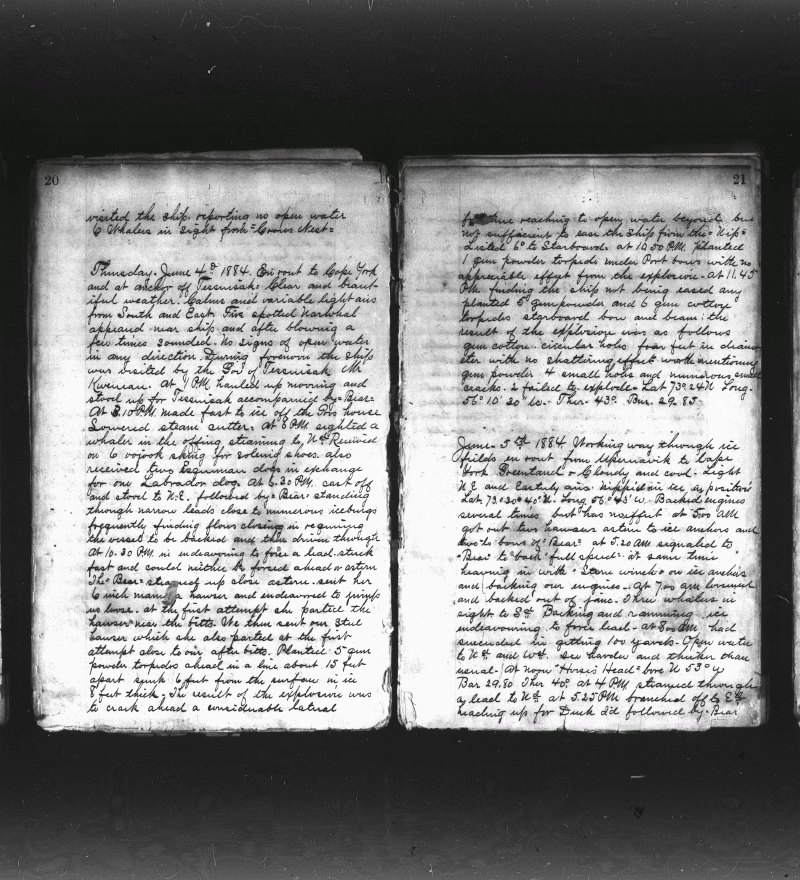 20
visited the ship. reporting no open water
6 Whalers in sight from "Crows Nest"
Thursday. June 4th 1884. En rout to Cape York
and at anchor off Tessuisak. Clear and beaut-
iful weather. Calms and variable light airs
from South and East. Five spotted Narwhal
appeared near ship and after blowing a
few times sounded. No signs of open water
in any direction. During forenoon the ship
was visited by the Gov of Tessuisak Mr
At 1 PM. hauled up mooring and
stood up for Tessuisak accompanied by "Bear"
At 3.10 PM. made fast to ice off the Govs house
Lowered steam cutter. At 5 PM. sighted a
whaler in the offing steaming to, Nd Received
on 6 skins for soleing shoes. also
received two Esquimau dogs in exchange
for one Labrador dog. At 6.20 P.M. cast off
and stood to N.E. followed by "Bear" standing
through narrow leads close to numerous icebergs
frequently finding floes closing in requiring
the vessel to be backed and then driven through
At 10.30 P.M. in endeavoring to force a lead stuck
fast and could neither be forced ahead or astern
The "Bear" steamed up close astern sent her
6 inch manila hawser and endeavored to
us loose. at the first attempt she parted the
hawser near the bitts. We then sent our steel
hawser which she also parted at the first
attempt close to our after bitts. Planted 5 gun
powder torpedos ahead in a line about 15 feet
apart sunk 6 feet from the surface in ice
8 feet thick. The result of the explosion was
to crack ahead a considerable lateral
21
reaching to open water beyond but
not sufficient to ease the ship from the "Nip"
Listed 6° to Starboard. at 10.50 P.M. planted
1 gun powder torpedo under Port bows with no
appreciable effect from the explosion. At 11.45
P.M. finding the ship not being eased any
planted 5 gunpowder and 6 gun cotton
torpedos starboard bow and beam: the
result of the explosion was as follows
gun cotton. circular holes four feet in diame
ter with no shattering effect worth mentioning
gun powder 4 small holes and numerous small
cracks. 2 failed to explode. Lat 73° 24' N Long.
56° 10' 20" W. Ther. 43° Bar. 29.85
June. 5th 1884. Working way through ice
fields en rout from Upernavik to Cape
York Greenland. Cloudy and cool. Light
N.E and Easterly airs. Nipped in ice in position
Lat. 73° 30' 40" N. Long 56° 43' W. Backed engines
several times but has no effect at 5.00 AM
got out two hawsers astern to ice anchors and
two to bows of "Bear" at 5.20 AM signaled to
"Bear" to "back full speed" at same time
heaving in with steam winch on ice anchors
and backing our engines. At 7.00 am loosened
and backed out of jam. Three whalers in
sight to Sd. Backing and ramming ice
endeavouring to force lead. at 8.00 AM had
succeeded in getting 100 yards. Open water
to Nd and Wd. ice harder and thicker than
usual. At noon "Horse's Head" bore N 53° W
Bar 29.80 Ther 40°. at 4 P.M. steamed through
a lead to Nd. at 5.25 PM branched off to Ed
reaching up for Duck Id followed by "Bear"